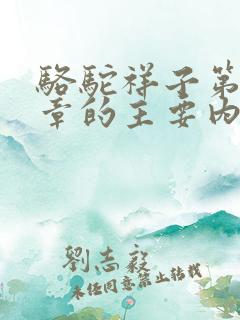 駱駝祥子第
章的主要內
劉志毅
未經同意禁止轉載